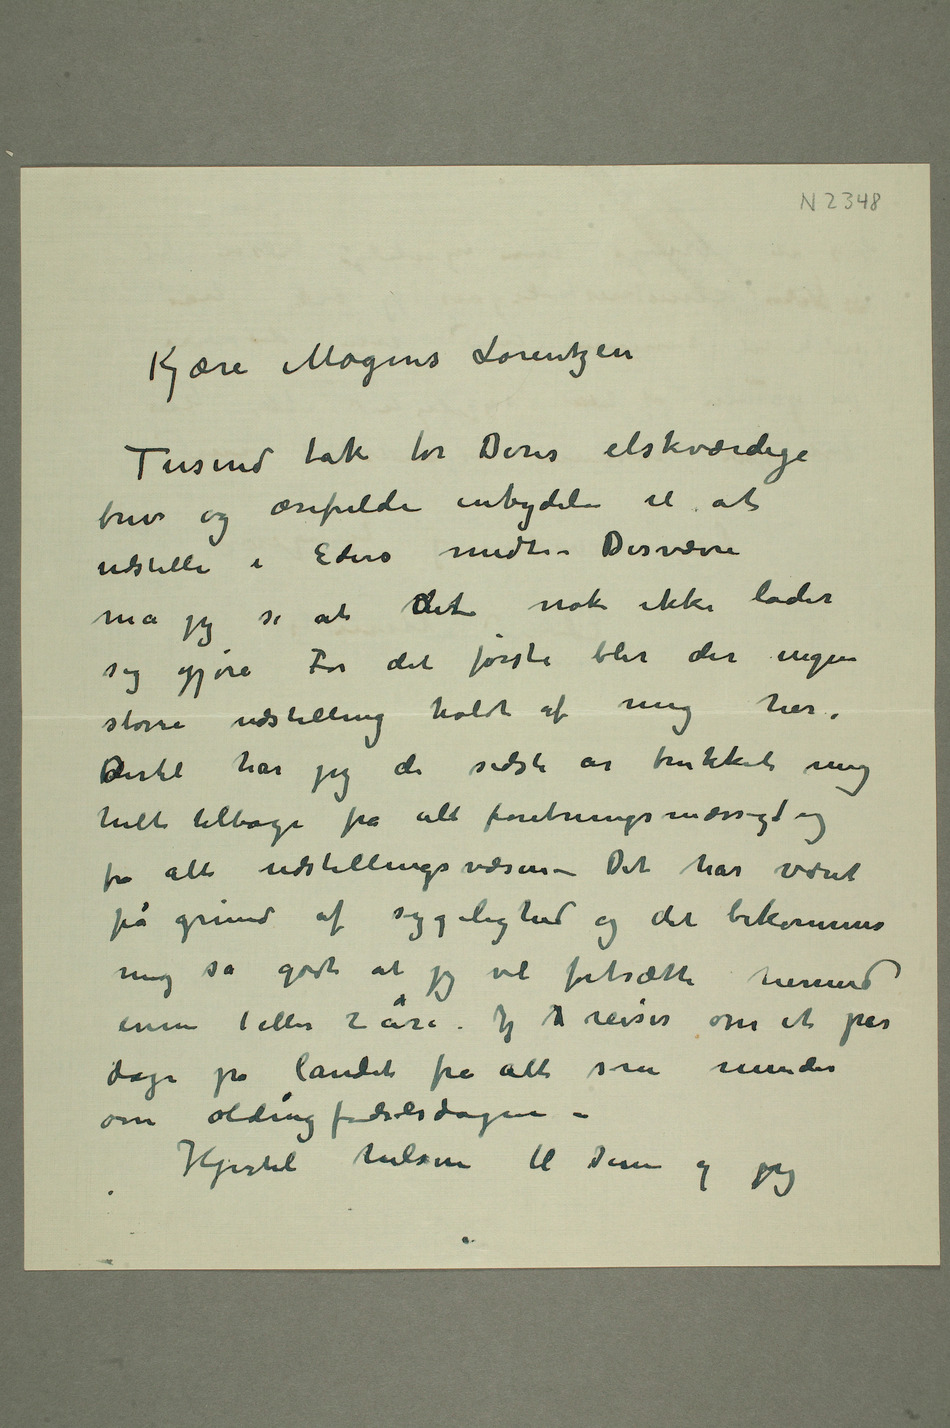 N 2348
Kjære Mogens Lorentzen
Tusend tak for Deres elskværdige
brev og ærefulde inbydelse til at
udstille i Eders midte – Desværre
må jeg si at det nok ikke lader
sig gjøre For det første blir der ingen
større udstilling holdt af mig her.
Dertil har jeg de sidste år trukket mig
helt tilbage fra alt foretningsmæssigt og
fra alt udstillingsvæsen – Det har været
på grund af sygelighed og det bekommer
mig så godt at jeg vil fortsætte hermed
ennu 1 eller 2 år. Jeg reiser om et par
dage på landet fra alt som minder
om oldingfødselsdagen –
Hjertel hilsen til Dem og jeg